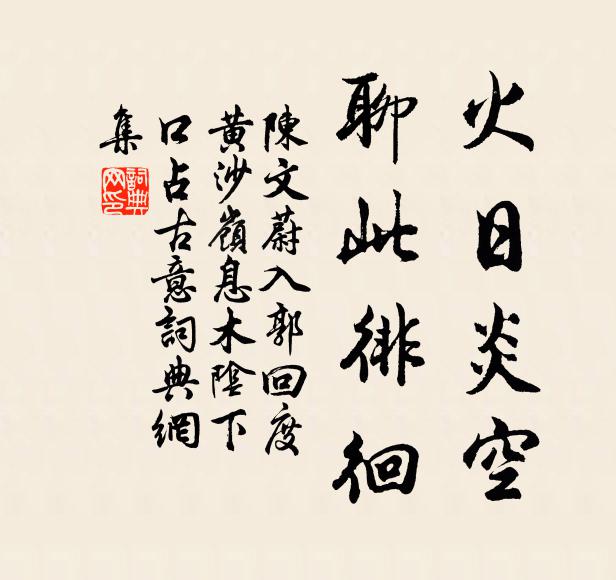 火日炎空
聊此徘徊
陳文蔚入郭回度
黃沙嶺息木陰下
口占古意詞典網
集
詞典
網印